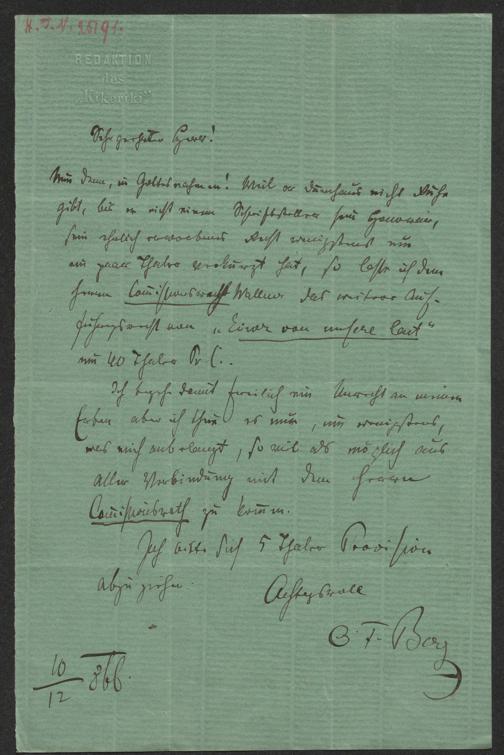 H. I. N. 25191.
REDAKTION
des
„Kikeriki"
Sehr geehrter Herr!
Nun denn, in Gottesnahmen! Weil er durchaus nicht Ruhe
gibt, bis er nicht einem Schriftsteller sein Honorar,
sein ehrlich erworbenes Recht wenigstens um
ein paar Thaler verkürzt hat, so lasse ich dem
Herrn Comissionsrath Wallner das weitere Auf-
führungsrecht von „Einer von unsere Leut"
um 40 Thaler Pr. C..
Ich begehe damit freilich ein Unrecht an meinen
Erben aber ich thue es nun, um wenigstens,
was mich anbelangt, so viel als möglich aus
aller Verbindung mit dem Herrn
Comissionsrath zu komen.
Ich bitte sich 5 Thaler Provision
abzuziehen.
Achtungsvoll
O. F. Berg
10/12 866.